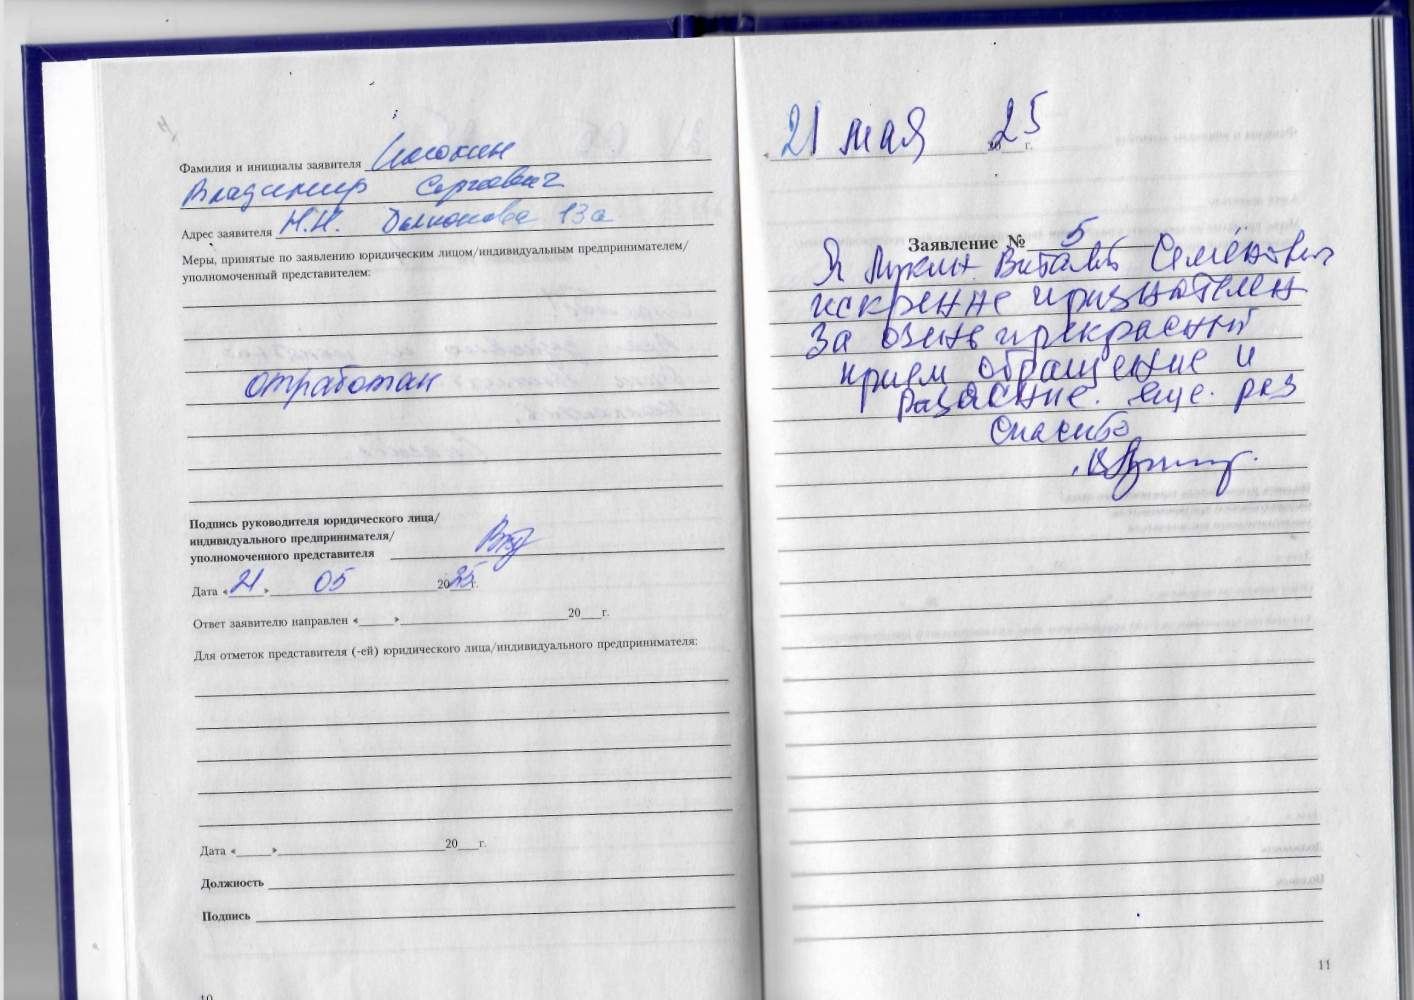 Фамилия и инициалы заявителя
Владимир Сергеевич
Адрес заявителя Н.Н. 13а
Меры, принятые по заявлению юридическим лицом/индивидуальным предпринимателем/
уполномоченный представителем:
отработан
Подпись руководителя юридического лица/
индивидуального предпринимателя/
уполномоченного представителя
Дата «21» 05 2025 г.
Ответ заявителю направлен « » 20 г.
Для отметок представителя (-ей) юридического лица/индивидуального предпринимателя:
Дата « » 20 г.
Должность
Подпись
10
« 21 мая 2025 г.
Заявление № 5
Я Виталий Семёнович
искренне признателен
за очень прекрасный
прием обращение и
еще. раз
спасибо
11